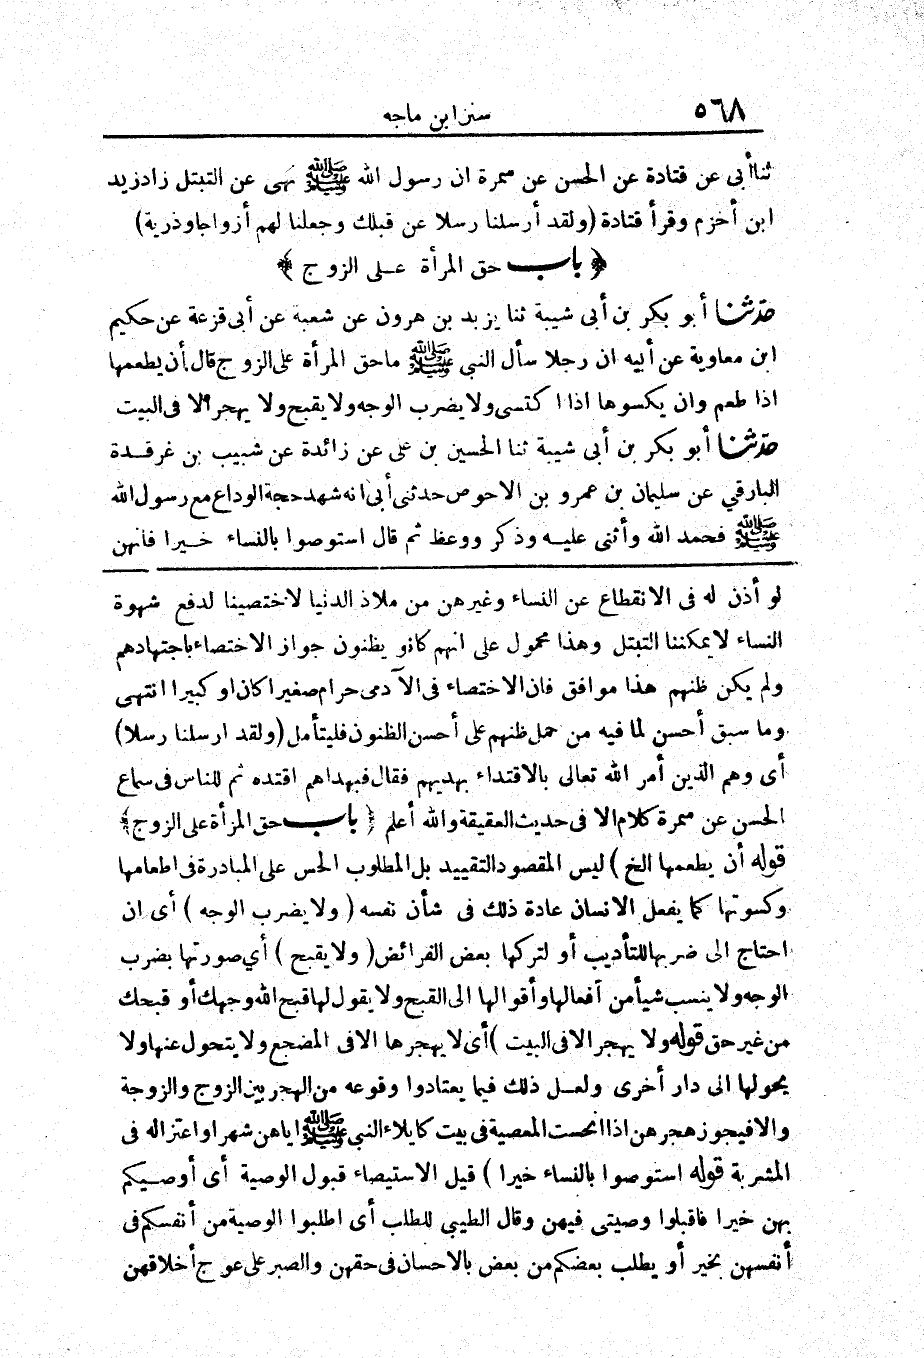 ٥٦٨
سنن ابن ماجه
ثنا أبي عن قتادة عن الحسن عن سمرة ان رسول الله ﷺ نهى عن التبتل زاد زيد
ابن أخزم وقرأ قتادة (ولقد أرسلنا رسلا عن قبلك وجعلنا لهم أزواجا وذرية)
﴿ باب حق المرأة على الزوج ﴾
حدثنا أبو بكر بن أبى شيبة ثنا يزيد بن هرون عن شعبة عن أبى قزعة عن حكيم
ابن معاوية عن أبيه ان رجلا سأل النبي ﷺ ماحق المرأة على الزوج قال أن يطعمها
اذا طعم وان يكسوها اذا اكتسى ولا يضرب الوجه ولا يقبح ولا يهجر الا فى البيت
حدثنا أبو بكر بن أبى شيبة ثنا الحسين بن على عن زائدة عن شبيب بن غرقدة
البارقي عن سليمان بن عمرو بن الاحوص حدثنى أبى انه شهد حجة الوداع مع رسول الله
ﷺ فحمد الله وأثنى عليه وذكر ووعظ ثم قال استوصوا بالنساء خيرا فانهن
لو أذن له فى الانقطاع عن النساء وغيرهن من ملاذ الدنيا لاختصينا لدفع شهوة
النساء لا يمكننا التبتل وهذا محمول على انهم كانو يظنون جواز الاختصاء باجتهادهم
ولم يكن ظنهم هذا موافق فان الاختصاء فى الآدمى حرام صغيرا كان او كبيرا انتهى
وما سبق أحسن لما فيه من حمل ظنهم على أحسن الظنون فليتأمل (ولقد ارسلنا رسلا)
أى وهم الذين أمر الله تعالى بالاقتداء بهديهم فقال فبهداهم اقتده ثم للناس فى سماع
الحسن عن سمرة كلام الا فى حديث العقيقة والله أعلم ﴿ باب حق المرأة على الزوج ﴾
قوله أن يطعمها الخ ) ليس المقصود التقييد بل المطلوب الحس على المبادرة فى اطعامها
وكسوتها كما يفعل الانسان عادة ذلك فى شأن نفسه ( ولا يضرب الوجه ) أى ان
احتاج الى ضربها للتأديب أو لتركها بعض الفرائض ( ولا يقبح ) أي صورتها بضرب
الوجه ولا ينسب شيأ من أفعالها وأقوالها الى القبح ولا يقول لها قبح الله وجهك أو قبحك
من غير حق قوله ولا يهجر الا فى البيت ) أى لا يهجرها الا فى المضجع ولا يتحول عنها ولا
يحولها الى دار أخرى ولعل ذلك فيما يعتادوا وقوعه من الهجر بين الزوج والزوجة
والا فيجوز هجرهن اذا انحست المعصية فى بيت كايلاء النبي ﷺ اياهن شهر او اعتزاله فى
المشربة قوله استوصوا بالنساء خيرا ) قيل الاستيصاء قبول الوصية أى أوصيكم
بهن خيرا فاقبلوا وصيتى فيهن وقال الطيبي للطلب أى اطلبوا الوصية من أنفسكم فى
أنفسهن بخير أو يطلب بعضكم من بعض بالاحسان فى حقهن والصبر على عوج أخلاقهن